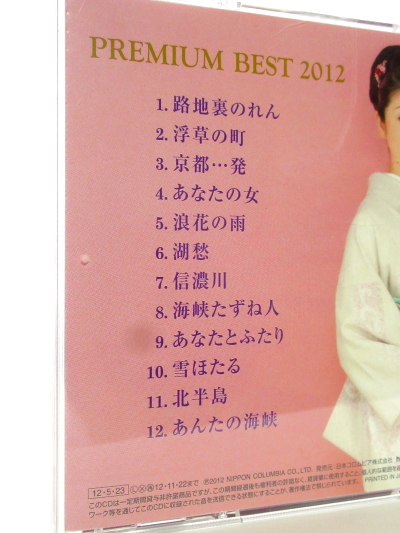 PREMIUM BEST 2012
1. 路地裏のれん
2. 浮草の町
3. 京都…発
4. あなたの女
5. 浪花の雨
6. 湖愁
7. 信濃川
8. 海峡たずね人
9. あなたとふたり
10. 雪ほたる
11. 北半島
12. あんたの海峡
12・5・23 12・11・22まで ℗2012 NIPPON COLUMBIA CO., LTD. 発売元 日本コロムビア株式会社
このCDは一定期間貸与非許諾商品ですが、この期間経過後も権利者の許諾なく、賃貸業に使用すること、個人的な範囲を超
ワーク等を通じてこのCDに収録された音を送信できる状態にすることが、著作権法で禁じられています。 PRINTED IN J